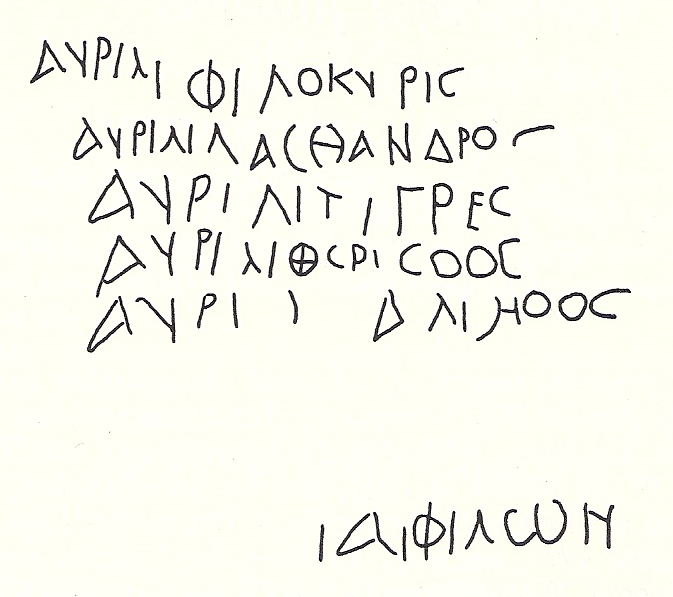 ΑΥΡΙΛΙ ΦΙΛΟΚΥΡΙϹ
ΑΥΡΙΛΙΛΑϹΘΑΝΔΡΟϹ
ΑΥΡΙΛΙΤΙΓΡΕϹ
ΑΥΡΙΛΙΘϹΡΙϹΟΟϹ
ΑΥΡΙ
ΙΑΙΦΙΛϹΩΝ